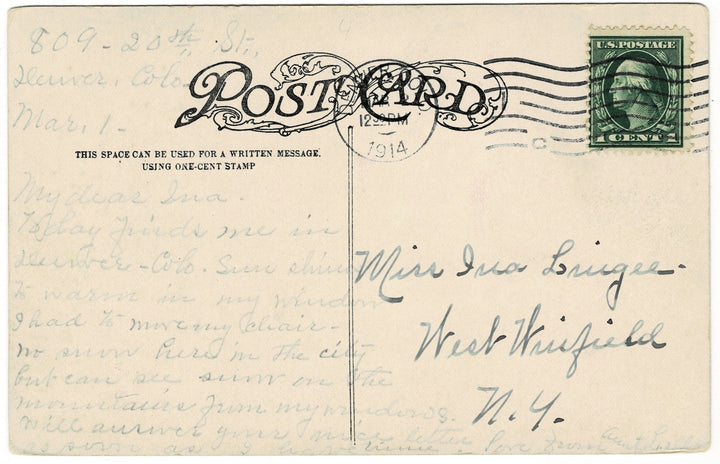 809 - 20th St.,
Denver, Colo.
Mar. 1 -
POST CARD
THIS SPACE CAN BE USED FOR A WRITTEN MESSAGE,
USING ONE-CENT STAMP
DENVER
12 30 PM
1914
C
U.S. POSTAGE
1 CENT 1
My dear Ina.
Today finds me in
Denver - Colo. Sun shines
so warm in my window
I had to move my chair -
no snow here in the city
but can see snow on the
mountains from my windows.
Will answer your nice letter
as soon as I have time. Love from Aunt
Miss Ina
West Winfield
N.Y.